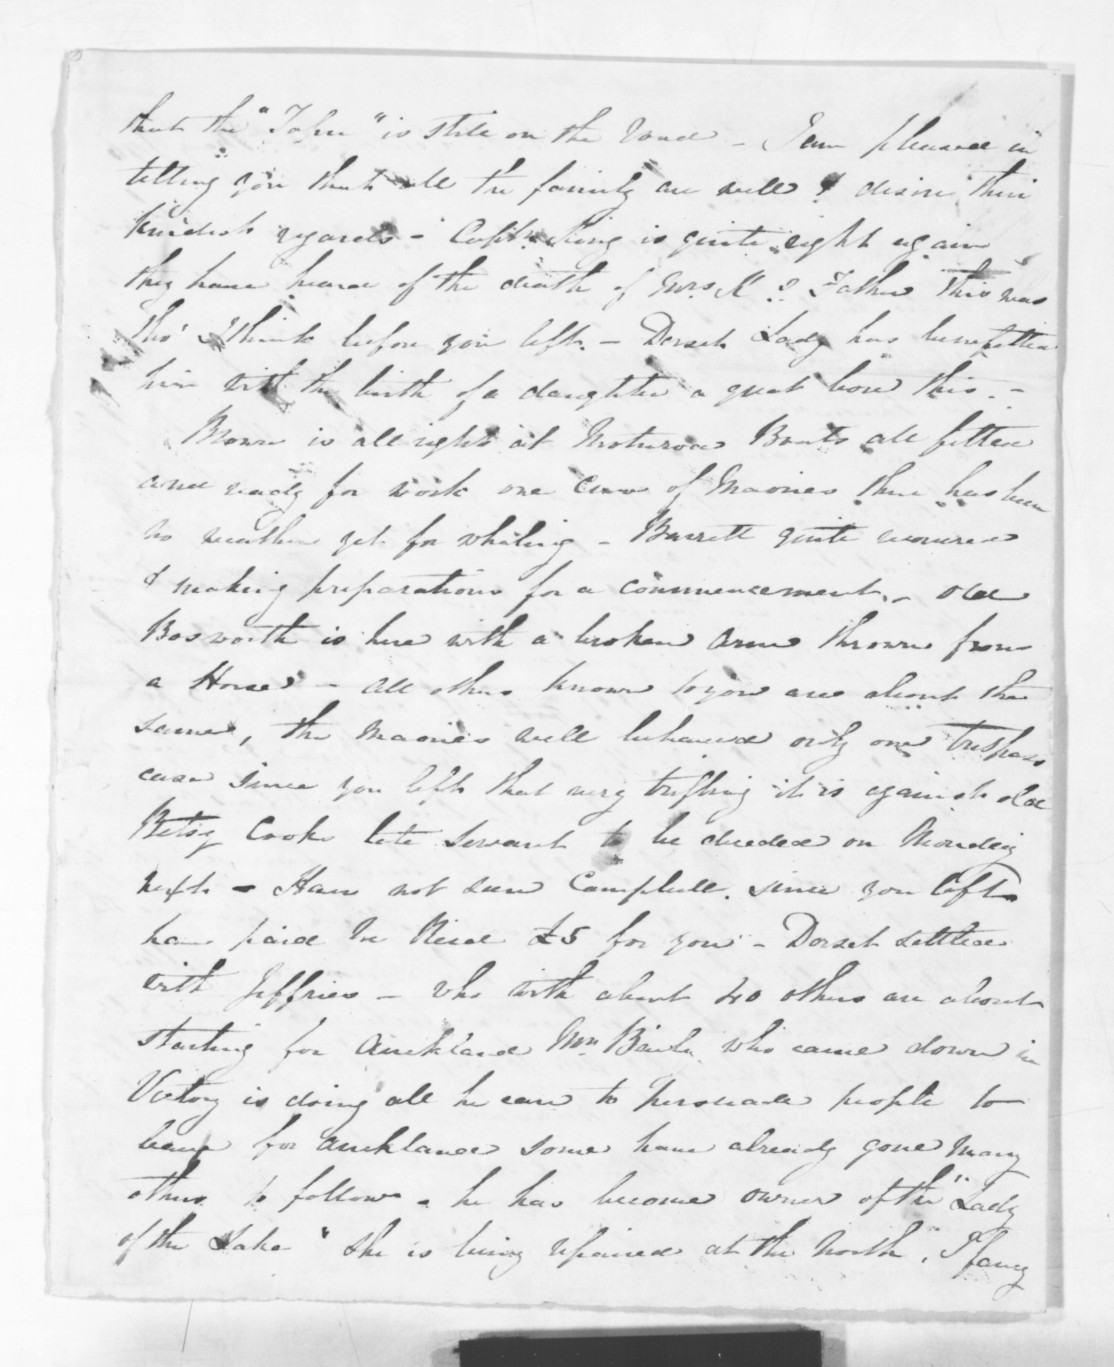 that the "Tobin" is still on the road - I am pleased in
telling you that all the family are well & desire their
kindest regards - Captn. King is quite right again
they have heard of the death of Mrs K's Father this was
tho' I think before you left. - Dorset Lady has benefitted
him with the birth of a daughter a great bore this. -
Brown is all right at Moturoa Boats all fitted
and ready for work one crew of Maories there has been
no weather yet for whaling - Barrett quite recovered
& making preparations for a commencement. - old
Bosworth is here with a broken arm thrown from
a Horse - all others known to you are about the
same, the Maories well behaved only one trespass
case since you left that very trifling it is against old
Betsy Cooke late servant to be decided on Monday
next - Have not seen Campbell. since you left
have paid £5 for you - Dorset settled
with Jeffries - who with about 40 others are about
starting for Auckland Mr. who came down in
Victory is doing all he can to persuade people to
leave for Auckland some have already gone many
others to follow. he has become owner of the "Lady
of the Lake" she is being repaired at the North, I fancy